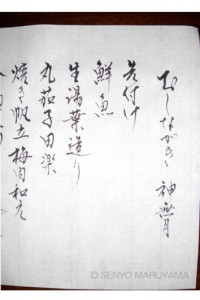 おしながき 神無月
先付け
鮮魚
生湯葉造り
丸茄子田楽
焼き帆立梅肉和え
© SENYO MARUYAMA